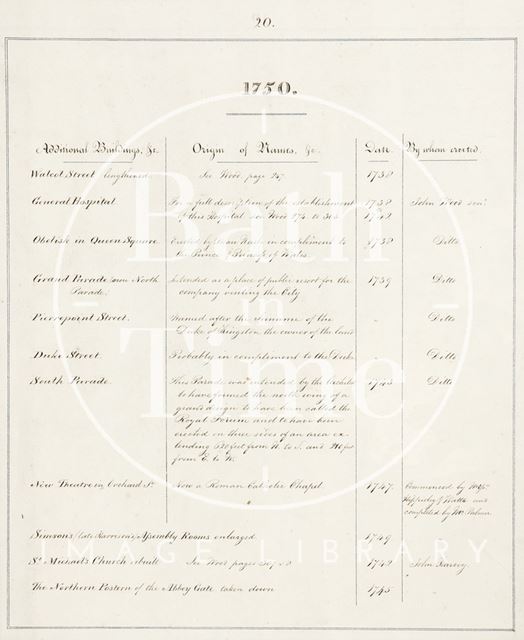 20.
1750.
Additional Buildings, &c. Origin of Names, &c. Date. By whom erected.
Walcot Street lengthened See Wood page 247 1738
General Hospital For a full description of the establishment 1738 John Wood senr.
of this Hospital see Wood 274 to 303 1742
Obelisk in Queen Square Erected by Beau Nash in compliment to 1738 Ditto
the Prince & Princess of Wales
Grand Parade (now North Intended as a place of public resort for the 1739 Ditto
Parade) company visiting the City
Pierrepoint Street. Named after the Sirname of the Ditto
Duke of Kingston the owner of the land
Duke Street. Probably in compliment to the Duke Ditto
South Parade. This Parade was intended by the Architect 1743 Ditto
to have formed the north wing of a
grand design to have been called the
Royal Forum and to have been
erected on three sides of an area ex-
tending feet from N. to S. and feet
from E. to W.
New Theatre in Orchard St. Now a Roman Catholic Chapel 1747. Commenced by Messrs.
Hipperley & Watts and
completed by Mr. Palmer
Simsons (late Harrison's) Assembly Rooms enlarged 1749
St. Michael's Church rebuilt See Wood pages 1742 John Harvey
The Northern Postern of the Abbey Gate taken down 1745
Bath
in
Time
IMAGE LIBRARY